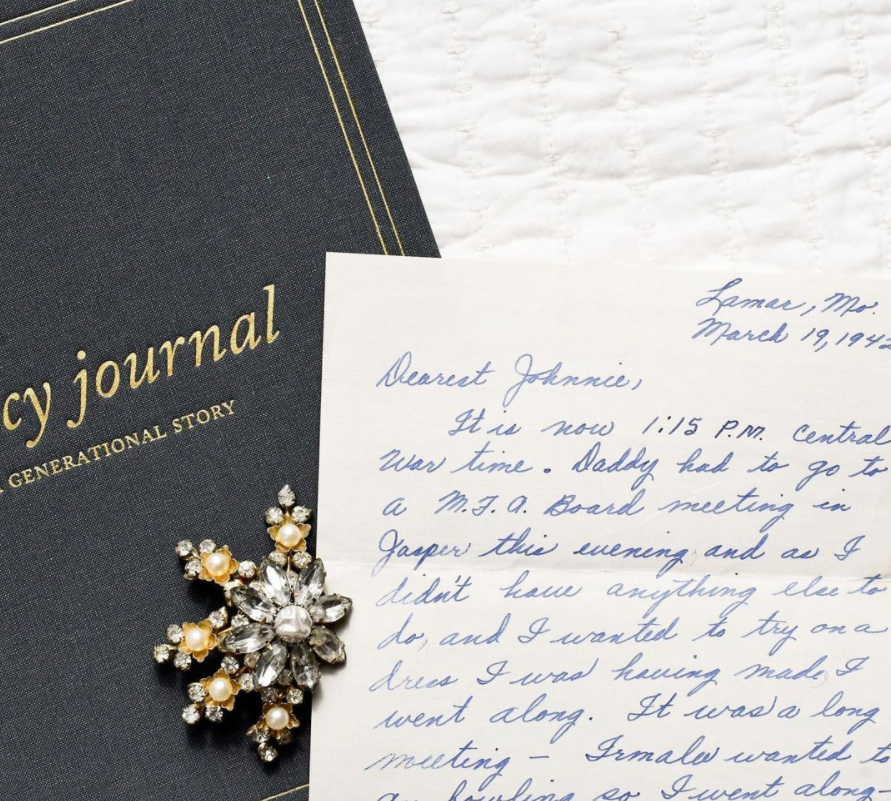 cy journal
A GENERATIONAL STORY
Lamar, Mo.
March 19, 1942
Dearest Johnnie,
It is now 1:15 P.M. Central
War time. Daddy had to go to
a M.F.A. Board meeting in
Jasper this evening and as I
didn't have anything else to
do, and I wanted to try on a
dress I was having made I
went along. It was a long
meeting – Irmalee wanted to
go bowling so I went along-